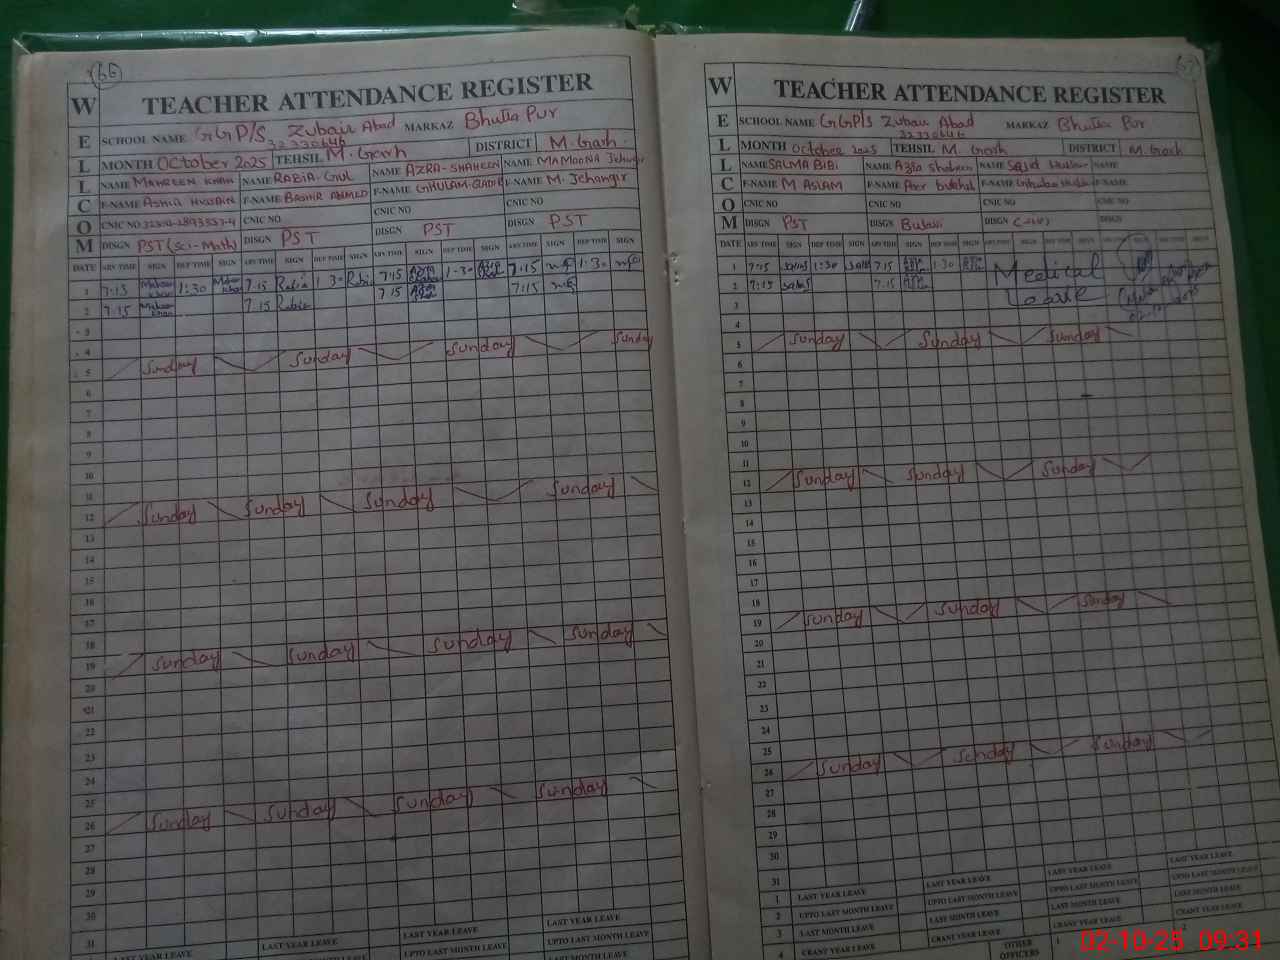 66
WELCOM
TEACHER ATTENDANCE REGISTER
SCHOOL NAME GGP/S Zubair Abad MARKAZ Bhutta Pur
32330646
MONTH October 2025 TEHSIL M. Garh DISTRICT M. Garh
NAME MAHREEN KHAN NAME RABIA. GUL NAME AZRA-SHAHEEN NAME MAMOONA Jehangir
F-NAME ASHIQ HUSSAIN F-NAME BASHIR AHMED F-NAME GHULAM-QADIR F-NAME M. Jehangir
CNIC NO CNIC NO CNIC NO CNIC NO
DISGN PST (Sci-Math) DISGN PST DISGN PST DISGN PST
DATE ARV TIME SIGN DEP TIME SIGN ARV TIME SIGN DEP TIME SIGN ARV TIME SIGN DEP TIME SIGN ARV TIME SIGN DEP TIME SIGN
1 7:15 Mahreen Khan 1:30 Mahreen Khan 7.15 Rabia 1 30 Rabi 7:15 Azra 1-30 Azra 7:15 1:30
2 7:15 Mahreen Khan 7.15 Rabia 7.15 Azra 7:15
3
4
5 Sunday Sunday Sunday Sunday
6
7
8
9
10
11
12 Sunday Sunday Sunday Sunday
13
14
15
16
17
18
19 Sunday Sunday Sunday Sunday
20
21
22
23
24
25
26 Sunday Sunday Sunday Sunday
27
28
29
30
31
LAST YEAR LEAVE LAST YEAR LEAVE LAST YEAR LEAVE LAST YEAR LEAVE
UPTO LAST MONTH LEAVE UPTO LAST MONTH LEAVE
67
WELCOM
TEACHER ATTENDANCE REGISTER
SCHOOL NAME GGP/S Zubair Abad MARKAZ Bhutta Pur
32330646
MONTH October 2025 TEHSIL M. Garh DISTRICT M. Garh
NAME SALMA BIBI NAME Azra Shaheen NAME Sajid Hussain NAME
F-NAME M ASLAM F-NAME F-NAME Ghulam F-NAME
CNIC NO CNIC NO CNIC NO CNIC NO
DISGN PST DISGN DISGN DISGN
DATE ARV TIME SIGN DEP TIME SIGN ARV TIME SIGN DEP TIME SIGN
1 7:15 Salma 1:30 Salma 7.15 1.30 Medical
2 7:15 Salma 7.15 Leave
3
4
5 Sunday Sunday Sunday
6
7
8
9
10
11
12 Sunday Sunday Sunday
13
14
15
16
17
18
19 Sunday Sunday Sunday
20
21
22
23
24
25
26 Sunday Sunday Sunday
27
28
29
30
31
1 LAST YEAR LEAVE LAST YEAR LEAVE LAST YEAR LEAVE LAST YEAR LEAVE
2 UPTO LAST MONTH LEAVE UPTO LAST MONTH LEAVE UPTO LAST MONTH LEAVE UPTO LAST MONTH LEAVE
3 LAST MONTH LEAVE LAST MONTH LEAVE LAST MONTH LEAVE LAST MONTH LEAVE
4 GRANT YEAR LEAVE GRANT YEAR LEAVE GRANT YEAR LEAVE GRANT YEAR LEAVE
OTHER OFFICERS 1 2
02-10-25 09:31